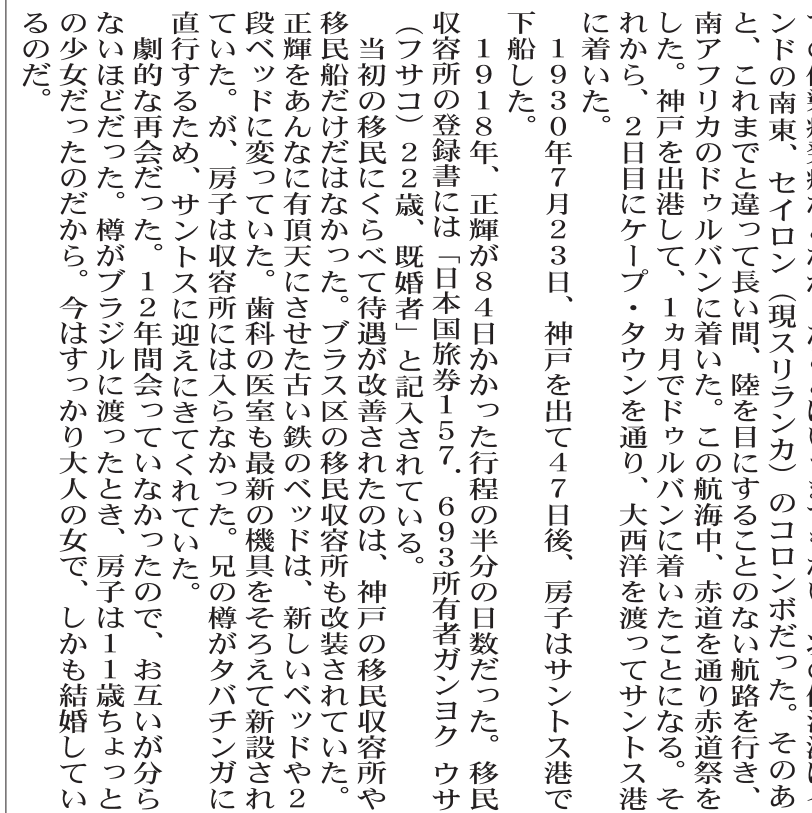 ンドの南東、セイロン（現スリランカ）のコロンボだった。そのあ
と、これまでと違って長い間、陸を目にすることのない航路を行き、
南アフリカのドゥルバンに着いた。この航海中、赤道を通り赤道祭を
した。神戸を出港して、１ヵ月でドゥルバンに着いたことになる。そ
れから、２日目にケープ・タウンを通り、大西洋を渡ってサントス港
に着いた。
１９３０年７月２３日、神戸を出て４７日後、房子はサントス港で
下船した。
１９１８年、正輝が８４日かかった行程の半分の日数だった。移民
収容所の登録書には「日本国旅券１５７．６９３所有者ガンヨク ウサ
（フサコ）２２歳、既婚者」と記入されている。
当初の移民にくらべて待遇が改善されたのは、神戸の移民収容所や
移民船だけだはなかった。ブラス区の移民収容所も改装されていた。
正輝をあんなに有頂天にさせた古い鉄のベッドは、新しいベッドや２
段ベッドに変っていた。歯科の医室も最新の機具をそろえて新設され
ていた。が、房子は収容所には入らなかった。兄の樽がタバチンガに
直行するため、サントスに迎えにきてくれていた。
劇的な再会だった。１２年間会っていなかったので、お互いが分ら
ないほどだった。樽がブラジルに渡ったとき、房子は１１歳ちょっと
の少女だったのだから。今はすっかり大人の女で、しかも結婚してい
るのだ。